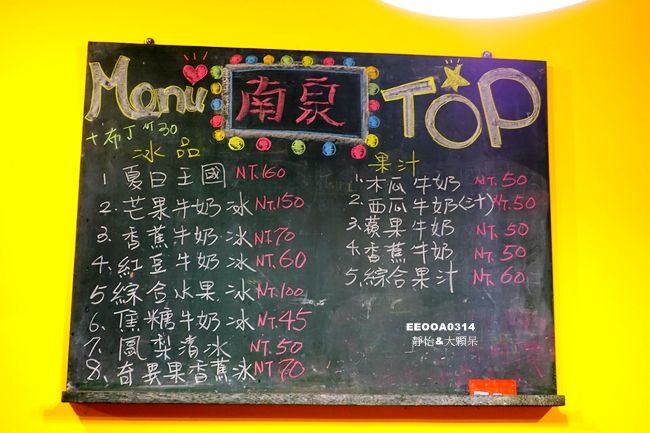 Menu 南泉 TOP
+布丁NT30
冰品
1. 夏日王國 NT.160
2. 芒果牛奶冰 NT.150
3. 香蕉牛奶冰 NT70
4. 紅豆牛奶冰 NT.60
5. 綜合水果冰 NT.100
6. 焦糖牛奶冰 NT.45
7. 鳳梨清冰 NT.50
8. 奇異果香蕉冰 NT70
果汁
1. 木瓜牛奶 NT.50
2. 西瓜牛奶(汁) NT.50
3. 蘋果牛奶 NT.50
4. 香蕉牛奶 NT.50
5. 綜合果汁 NT.60
EEOOA0314
靜怡&大顆呆